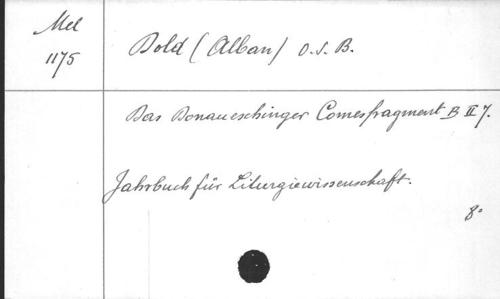 Mel
1175
Dold (Alban) O.S.B.
Das Donaueschinger Comesfragment B II 7.
Jahrbuch für Liturgiewissenschaft.
8º